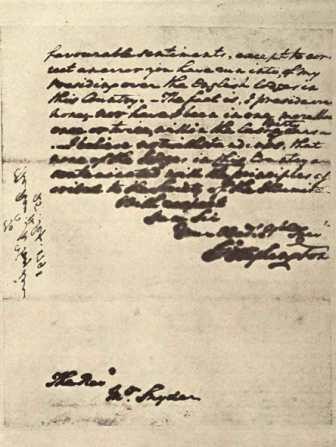 favourable sentiments, except to cor-
rect an error you have run into, of my
Presiding over the English lodges in
this Country. The fact is, I preside over
none, nor have I been in one more than
once or twice, within the last thirty years.
I believe notwithstandings, that
none of the Lodges in this Country are
contaminated with the principles as-
cribed to the Society of the Illuminati.
With respect
I am Sir
Your Obedt Hble Servt
Go Washington
The Revd
Mr Snyder